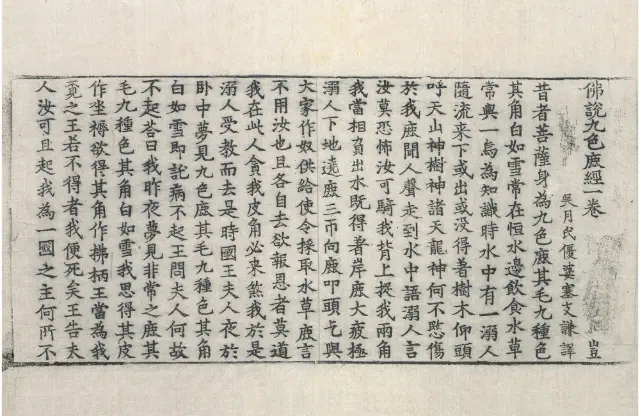 佛說九色鹿經一卷
吳月氏優婆塞支謙譯 豈
昔者菩薩身為九色鹿其毛九種色
其角白如雪常在恒水邊飲食水草
常與一烏為知識時水中有一溺人
隨流來下或出或沒得著樹木仰頭
呼天山神樹神諸天龍神何不愍傷
於我鹿聞人聲走到水中語溺人言
汝莫恐怖汝可騎我背上捉我兩角
我當相負出水既得著岸鹿大疲極
溺人下地遶鹿三帀向鹿叩頭乞與
大家作奴供給使令採取水草鹿言
不用汝也且各自去欲報恩者莫道
我在此人貪我皮角必來煞我於是
溺人受教而去是時國王夫人夜於
卧中夢見九色鹿其毛九種色其角
白如雪即託病不起王問夫人何故
不起荅曰我昨夜夢見非常之鹿其
毛九種色其角白如雪我思得其皮
作坐褥欲得其角作拂柄王當為我
覓之王若不得者我便死矣王告夫
人汝可且起我為一國之主何所不